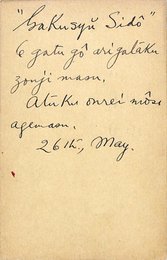 "Gakusyū Sidō"
6 gatu gô arigataku
zonji masu.
Atuku onrei môsi
agemasu.
26th, May.